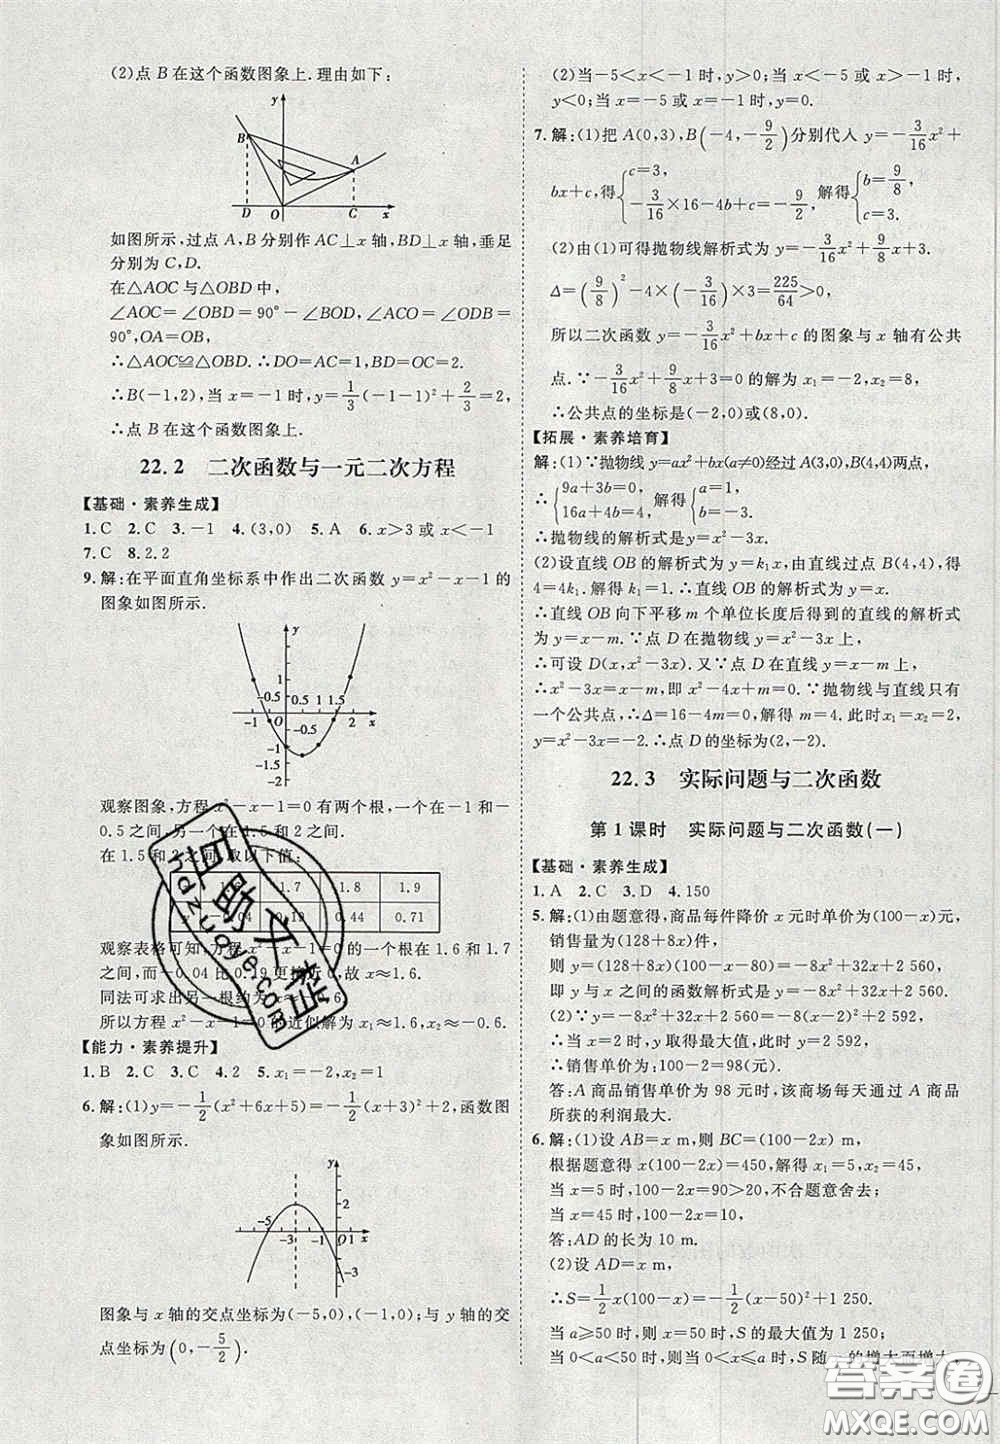 (2)点 B 在这个函数图象上.理由如下:
y
B
A
D
O
C
x
如图所示,过点 A,B 分别作 AC⊥x 轴,BD⊥x 轴,垂足
分别为 C,D.
在△AOC 与△OBD 中,
∠AOC=∠OBD=90°-∠BOD,∠ACO=∠ODB=
90°,OA=OB,
∴△AOC≌△OBD.∴DO=AC=1,BD=OC=2.
∴B(-1,2),当 x=-1 时,y=1/3(-1-1)²+2/3=2.
∴点 B 在这个函数图象上.
22.2 二次函数与一元二次方程
【基础·素养生成】
1.C 2.C 3.-1 4.(3,0) 5.A 6.x>3 或 x<-1
7.C 8.2.2
9.解:在平面直角坐标系中作出二次函数 y=x²-x-1 的
图象如图所示.
y
1
0.5
0.5 1 1.5
-1 O 2 x
-0.5
-1
-1.5
-2
观察图象,方程 x²-x-1=0 有两个根,一个在-1 和-
0.5 之间,另一个在 1.5 和 2 之间.
在 1.5 和 2 之间,取以下值:
1.7 1.8 1.9
-0.04 0.19 0.44 0.71
观察表格可知,方程 x²-x-1=0 的一个根在 1.6 和 1.7
之间,而-0.04 比 0.19 更接近 0,故 x≈1.6.
同法可求出另一根约为 x≈-0.6.
所以方程 x²-x-1=0 的近似解为 x₁≈1.6,x₂≈-0.6.
【能力·素养提升】
1.B 2.C 3.C 4.2 5.x₁=-2,x₂=1
6.解:(1)y=-1/2(x²+6x+5)=-1/2(x+3)²+2,函数图
象如图所示.
y
2
-5 -3 -1 O 1 x
-3
图象与 x 轴的交点坐标为(-5,0),(-1,0);与 y 轴的交
点坐标为(0,-5/2).
(2)当-5<x<-1 时,y>0;当 x<-5 或 x>-1 时,
y<0;当 x=-5 或 x=-1 时,y=0.
7.解:(1)把 A(0,3),B(-4,-9/2)分别代入 y=-3/16x²+
bx+c,得{c=3, -3/16×16-4b+c=-9/2, 解得{b=9/8, c=3.
(2)由(1)可得抛物线解析式为 y=-3/16x²+9/8x+3.
Δ=(9/8)²-4×(-3/16)×3=225/64>0,
所以二次函数 y=-3/16x²+bx+c 的图象与 x 轴有公共
点.∵-3/16x²+9/8x+3=0 的解为 x₁=-2,x₂=8,
∴公共点的坐标是(-2,0)或(8,0).
【拓展·素养培育】
解:(1)∵抛物线 y=ax²+bx(a≠0)经过 A(3,0),B(4,4)两点,
∴{9a+3b=0, 16a+4b=4, 解得{a=1, b=-3.
∴抛物线的解析式为 y=x²-3x.
(2)设直线 OB 的解析式为 y=k₁x,由直线过点 B(4,4),得
4=4k₁.解得 k₁=1.∴直线 OB 的解析式为 y=x.
∴直线 OB 向下平移 m 个单位长度后得到的直线的解析式
为 y=x-m.∵点 D 在抛物线 y=x²-3x 上,
∴可设 D(x,x²-3x).又∵点 D 在直线 y=x-m 上,
∴x²-3x=x-m,即 x²-4x+m=0.∵抛物线与直线只有
一个公共点,∴Δ=16-4m=0.解得 m=4.此时 x₁=x₂=2,
y=x²-3x=-2.∴点 D 的坐标为(2,-2).
22.3 实际问题与二次函数
第 1 课时 实际问题与二次函数(一)
【基础·素养生成】
1.A 2.C 3.D 4.150
5.解:(1)由题意得,商品每件降价 x 元时单价为(100-x)元,
销售量为(128+8x)件,
则 y=(128+8x)(100-x-80)=-8x²+32x+2 560,
即 y 与 x 之间的函数解析式是 y=-8x²+32x+2 560.
(2)∵y=-8x²+32x+2 560=-8(x-2)²+2 592,
∴当 x=2 时,y 取得最大值,此时 y=2 592,
∴销售单价为:100-2=98(元).
答:A 商品销售单价为 98 元时,该商场每天通过 A 商品
所获的利润最大.
6.解:(1)设 AB=x m,则 BC=(100-2x)m,
根据题意得 x(100-2x)=450,解得 x₁=5,x₂=45,
当 x=5 时,100-2x=90>20,不合题意舍去;
当 x=45 时,100-2x=10,
答:AD 的长为 10 m.
(2)设 AD=x m,
∴S=1/2x(100-x)=-1/2(x-50)²+1 250,
当 a≥50 时,则 x=50 时,S 的最大值为 1 250;
当 0<a<50 时,则当 0<x≤a 时,S 随 的增大而增大,
百助文档
hdzuoye.com
答案圈
MXQE.COM